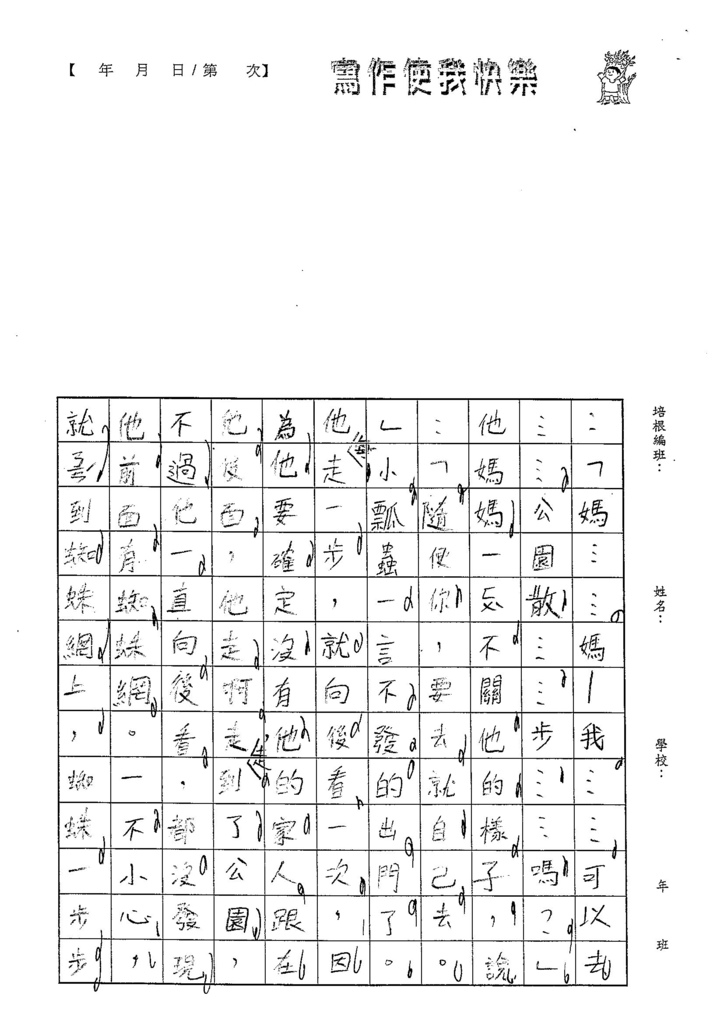 【 年 月 日/第 次】
寫作使我快樂
培根編班：
姓名：
學校：
年 班
：「媽……媽—我……可以去
……公園散……步……嗎？」
他媽媽一不關他的樣子，說
：「隨便你，要去就自己去。
」小瓢蟲一言不發的出門了。
他每走一步，就向後看一次，因
為他要確定沒有他的家人跟在
他後面，他走啊走到了公園，
不過他一直向後看，都沒發現
他前面有蜘蛛網。一不小心，
就到蜘蛛網上，蜘蛛一步步